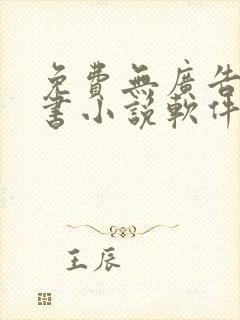 免費無廣告
書小說軟件
王辰